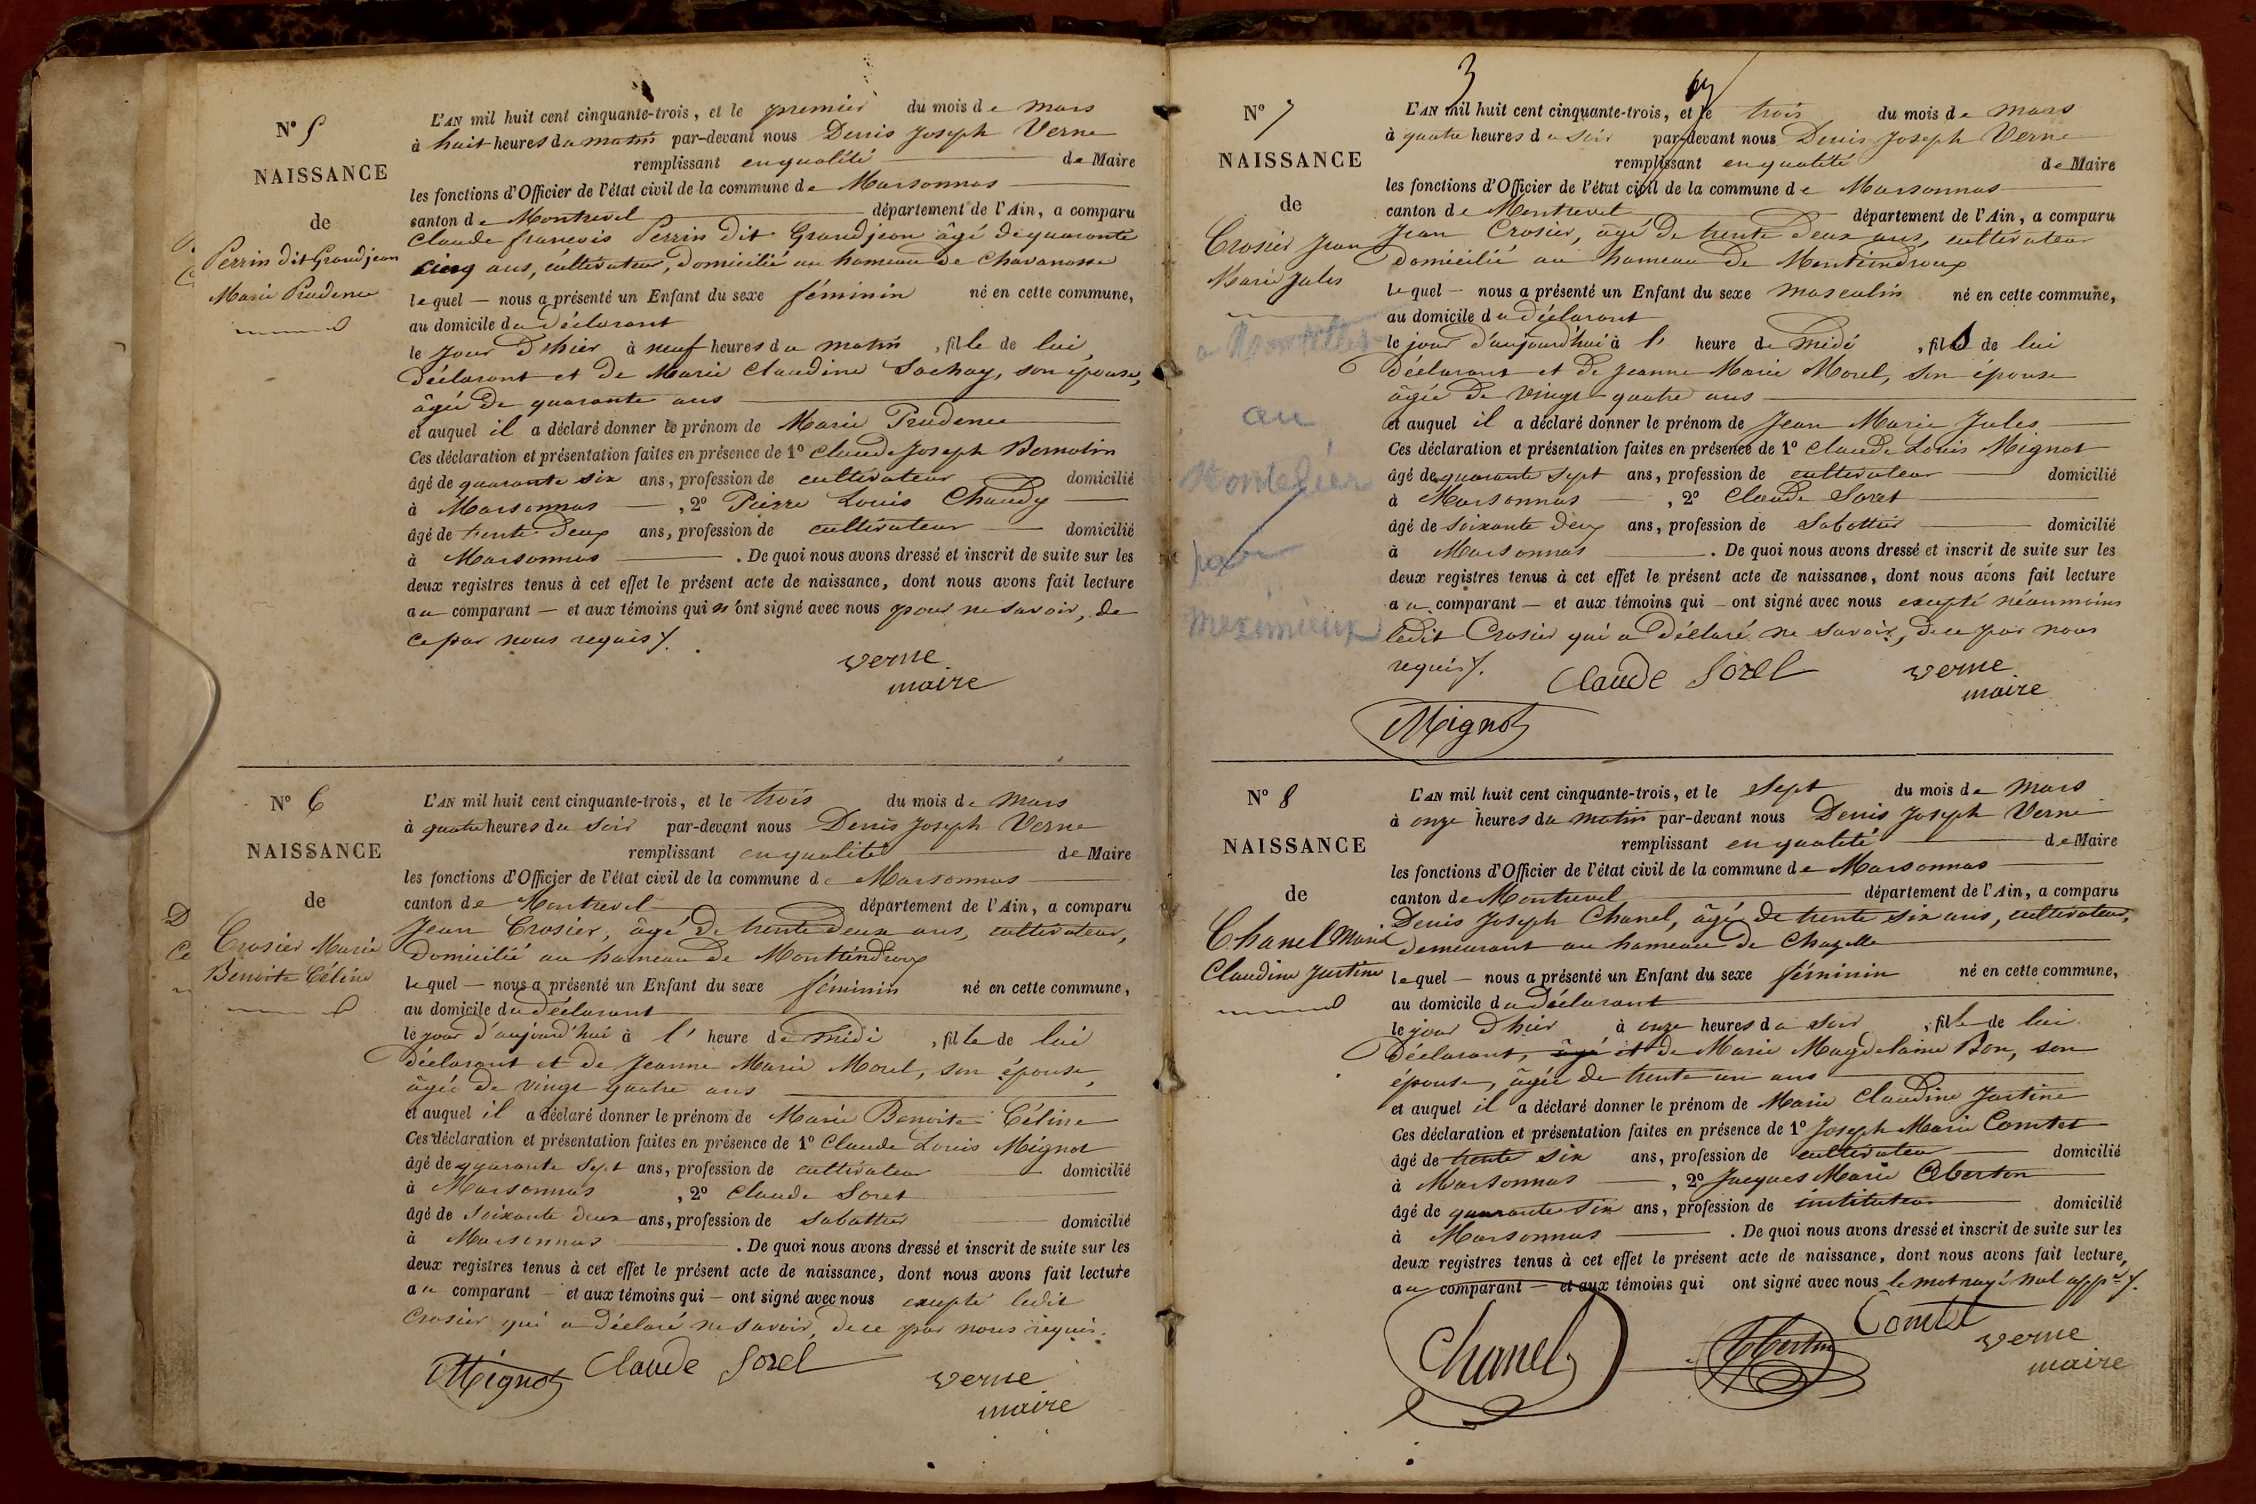 N° 5
NAISSANCE
de
Perrin dit Grandjean
Marie Prudence
L'AN mil huit cent cinquante-trois, et le premier du mois de mars
à huit heures du matin par-devant nous Denis Joseph Verne
remplissant en qualité de Maire
les fonctions d'Officier de l'état civil de la commune de Marsonnas
canton de Montrevel département de l'Ain, a comparu
Claude françois Perrin dit Grandjean âgé de quarante
cinq ans, cultivateur, domicilié au hameau de Chavanosse
lequel — nous a présenté un Enfant du sexe féminin né en cette commune,
au domicile du déclarant
le jour d'hier à neuf heures du matin, fille de lui,
déclarant et de Marie Claudine Sochay, son épouse,
âgée de quarante ans
et auquel il a déclaré donner le prénom de Marie Prudence
Ces déclaration et présentation faites en présence de 1° Claude Joseph Bernolin
âgé de quarante six ans, profession de cultivateur domicilié
à Marsonnas, 2° Pierre Louis Chaudy
âgé de trente deux ans, profession de cultivateur domicilié
à Marsonnas. De quoi nous avons dressé et inscrit de suite sur les
deux registres tenus à cet effet le présent acte de naissance, dont nous avons fait lecture
au comparant — et aux témoins qui n'ont signé avec nous pour ne savoir, de
ce par nous requis /.
verne
maire
N° 6
NAISSANCE
de
Crosier Marie
Benoite Céline
L'AN mil huit cent cinquante-trois, et le trois du mois de mars
à quatre heures du soir par-devant nous Denis Joseph Verne
remplissant en qualité de Maire
les fonctions d'Officier de l'état civil de la commune de Marsonnas
canton de Montrevel département de l'Ain, a comparu
Jean Crosier, âgé de trente deux ans, cultivateur,
domicilié au hameau de Montéindroux
lequel — nous a présenté un Enfant du sexe féminin né en cette commune,
au domicile du déclarant
le jour d'aujourd'hui à l' heure de midi, fille de lui
déclarant et de Jeanne Marie Morel, son épouse,
âgée de vingt quatre ans
et auquel il a déclaré donner le prénom de Marie Benoite Céline
Ces déclaration et présentation faites en présence de 1° Claude Louis Mignot
âgé de quarante sept ans, profession de cultivateur domicilié
à Marsonnas, 2° Claude Soret
âgé de soixante deux ans, profession de sabottier domicilié
à Marsonnas. De quoi nous avons dressé et inscrit de suite sur les
deux registres tenus à cet effet le présent acte de naissance, dont nous avons fait lecture
au comparant — et aux témoins qui — ont signé avec nous excepté ledit
Crosier qui a déclaré ne savoir, de ce par nous requis.
Mignot Claude Sorel
verne
maire
3
N° 7
NAISSANCE
de
Crosier Jean
Marie Jules
au
Montelier
pour
meximieux
L'AN mil huit cent cinquante-trois, et le trois du mois de mars
à quatre heures du soir par-devant nous Denis Joseph Verne
remplissant en qualité de Maire
les fonctions d'Officier de l'état civil de la commune de Marsonnas
canton de Montrevel département de l'Ain, a comparu
Jean Crosier, âgé de trente deux ans, cultivateur
domicilié au hameau de Montéindroux
lequel — nous a présenté un Enfant du sexe masculin né en cette commune,
au domicile du déclarant
le jour d'aujourd'hui à l' heure de midi, fils de lui
déclarant et de Jeanne Marie Morel, son épouse
âgée de vingt quatre ans
et auquel il a déclaré donner le prénom de Jean Marie Jules
Ces déclaration et présentation faites en présence de 1° Claude Louis Mignot
âgé de quarante sept ans, profession de cultivateur domicilié
à Marsonnas, 2° Claude Soret
âgé de soixante deux ans, profession de sabottier domicilié
à Marsonnas. De quoi nous avons dressé et inscrit de suite sur les
deux registres tenus à cet effet le présent acte de naissance, dont nous avons fait lecture
au comparant — et aux témoins qui — ont signé avec nous excepté néanmoins
ledit Crosier qui a déclaré ne savoir, de ce par nous
requis /.
Claude Sorel verne
maire
Mignot
N° 8
NAISSANCE
de
Chanel Marie
Claudine Justine
L'AN mil huit cent cinquante-trois, et le sept du mois de mars
à onze heures du matin par-devant nous Denis Joseph Verne
remplissant en qualité de Maire
les fonctions d'Officier de l'état civil de la commune de Marsonnas
canton de Montrevel département de l'Ain, a comparu
Denis Joseph Chanel, âgé de trente six ans, cultivateur,
demeurant au hameau de Chazelle
lequel — nous a présenté un Enfant du sexe féminin né en cette commune,
au domicile du déclarant
le jour d'hier à onze heures du soir, fille de lui
déclarant, âgé et de Marie Magdelaine Bon, son
épouse, âgée de trente un ans
et auquel il a déclaré donner le prénom de Marie Claudine Justine
Ces déclaration et présentation faites en présence de 1° Joseph Marie Comtet
âgé de trente six ans, profession de cultivateur domicilié
à Marsonnas, 2° Jacques Marie Oberton
âgé de quarante six ans, profession de instituteur domicilié
à Marsonnas. De quoi nous avons dressé et inscrit de suite sur les
deux registres tenus à cet effet le présent acte de naissance, dont nous avons fait lecture,
au comparant — et aux témoins qui ont signé avec nous le mot rayé nul app.é /.
Chanel Comtet
verne
maire